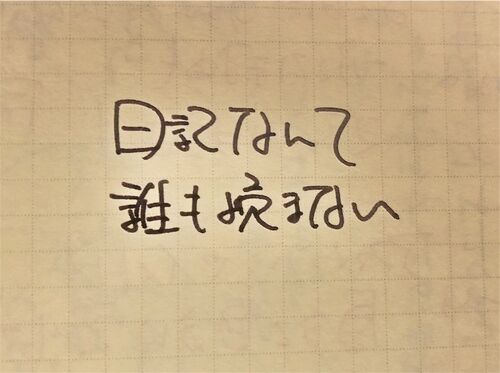 日記なんて
誰も読まない